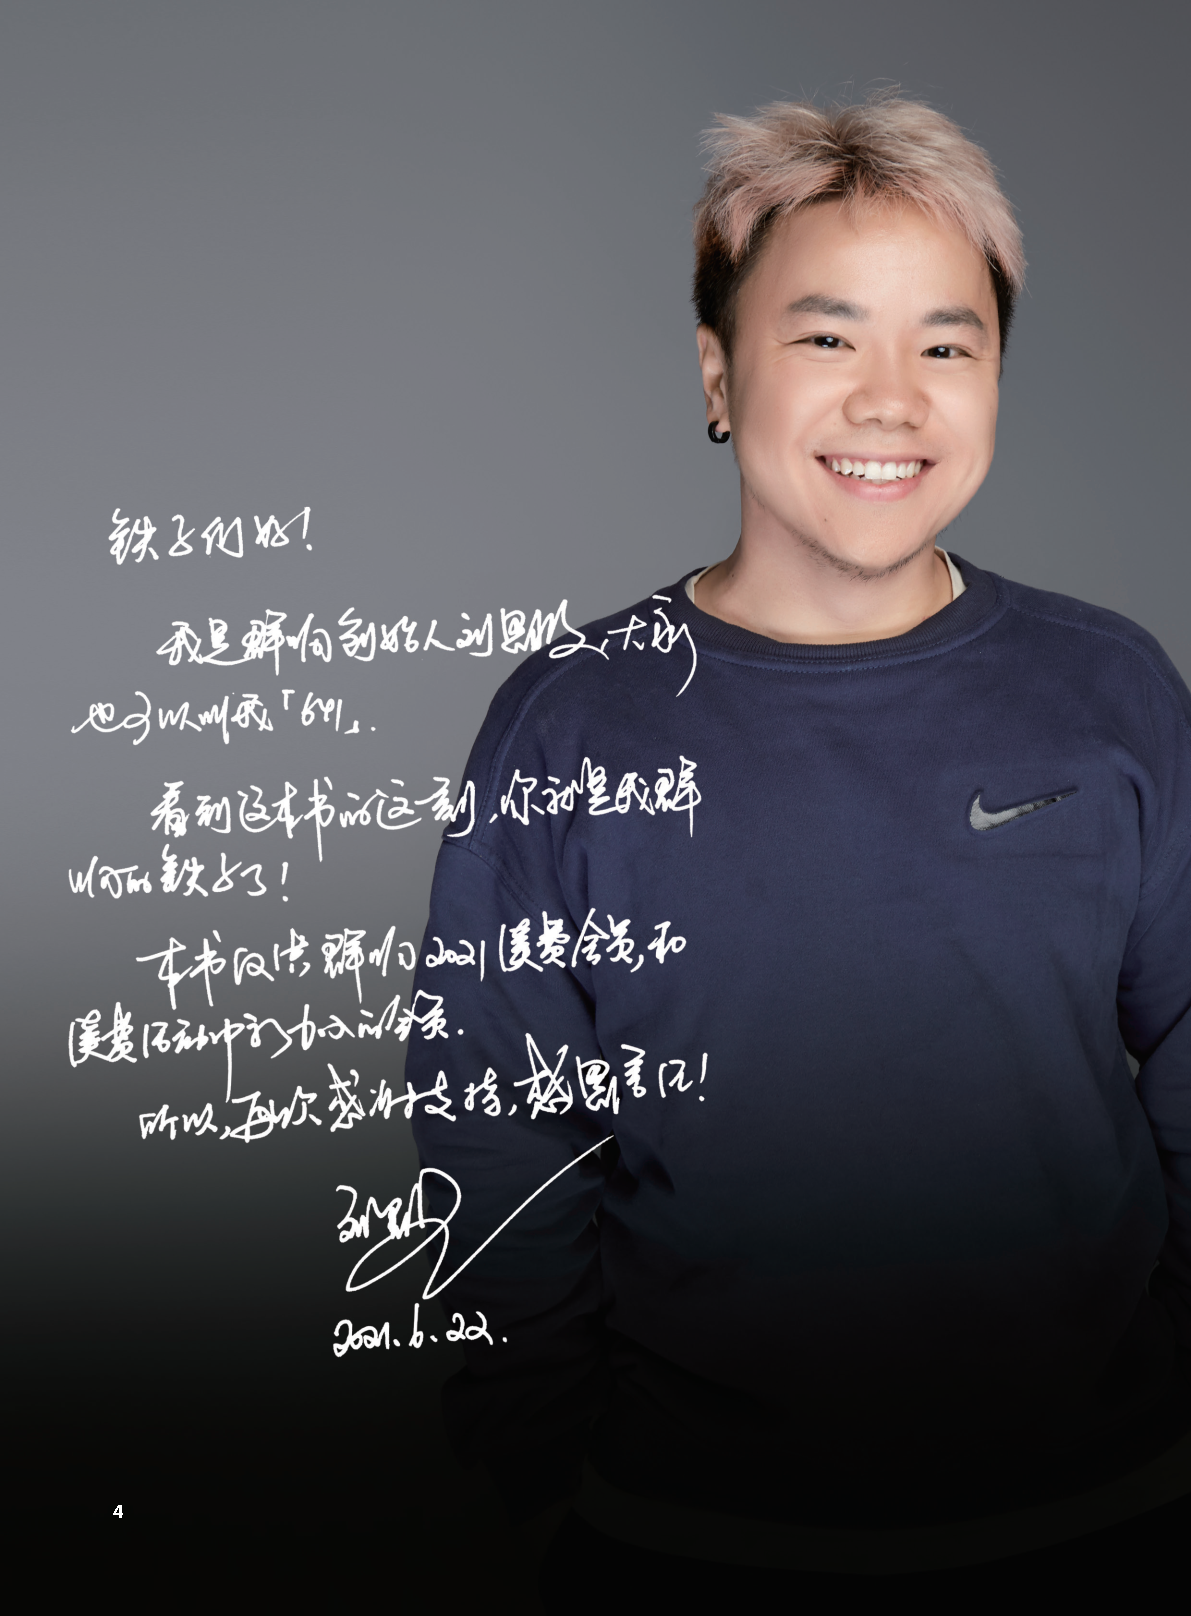 铁子们好！
我是群响创始人刘思毅，大家
也可以叫我「641」.
看到这本书的这一刻，你就是我群
响的铁子了！
本书仅供群响2021续费会员，和
续费活动中新加入的会员.
所以，再次感谢支持，感恩言沉！
刘思毅
2021.6.22.
4